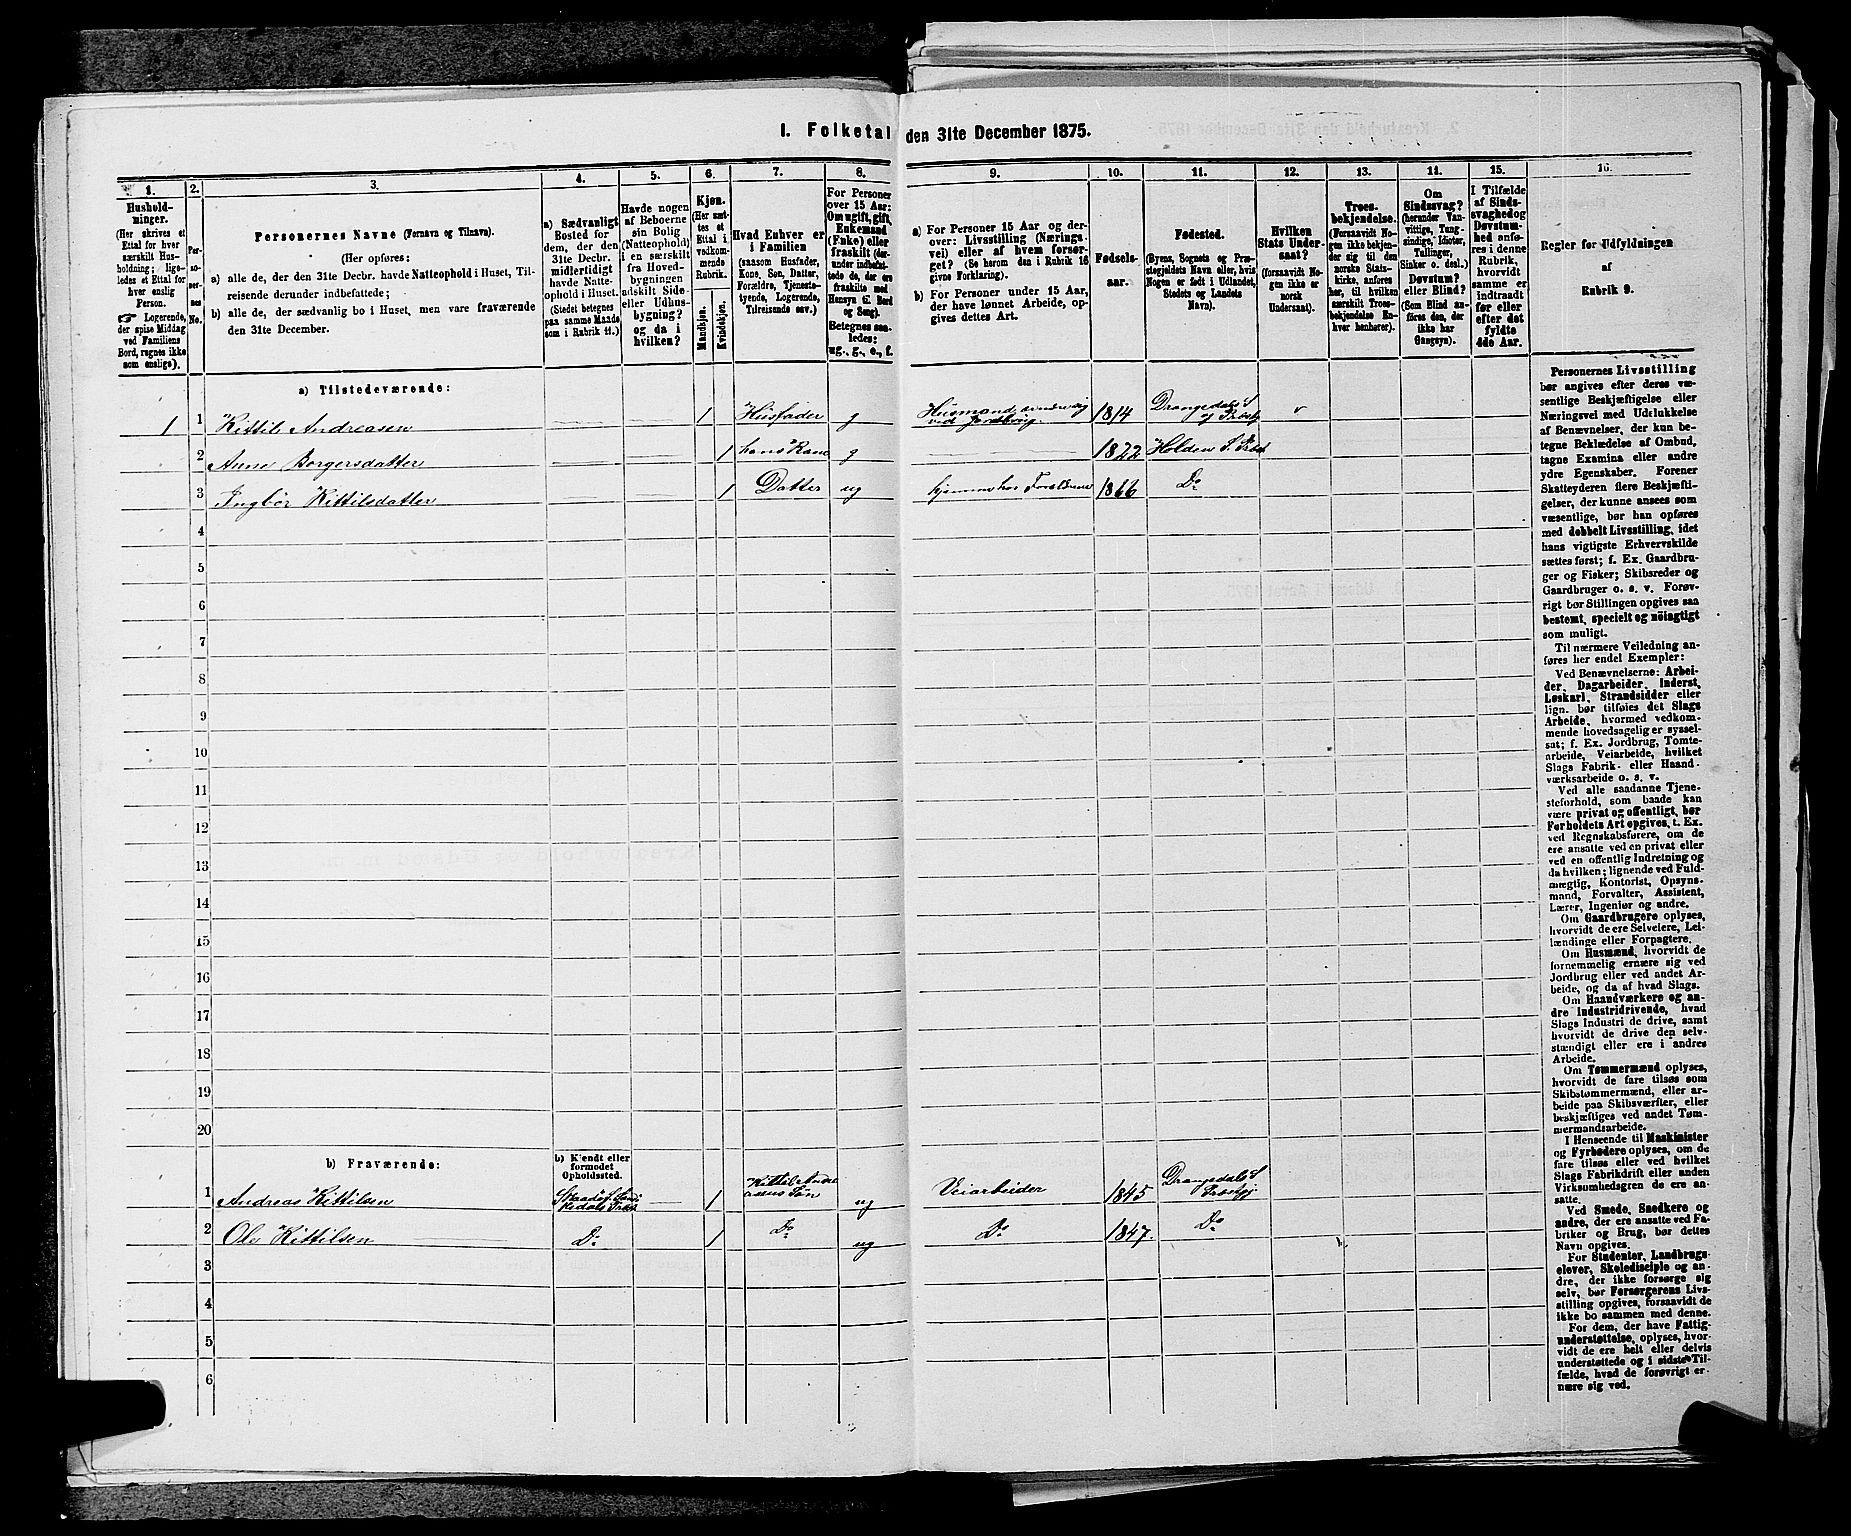 I. Folketal den 31te December 1875.
1.
2.
3.
4.
5.
6.
7.
8.
9.
10.
11.
12.
13.
14.
15.
16.
Hushold-
ninger.
(Her skrives et
Ettal for hver
særskilt Hus-
holdning; lige-
ledes et Ettal for
hver enslig
Person.
☞ Logerende,
der spise Middag
ved Familiens
Bord, regnes ikke
som enslige).
Per-
so-
ner-
nes
No.
Personernes Navne (Fornavn og Tilnavn).
(Her opføres:
a) alle de, der den 31te Decbr. havde Natteophold i Huset, Til-
reisende derunder indbefattede;
b) alle de, der sædvanlig bo i Huset, men vare fraværende
den 31te December.
a) Sædvanligt
Bosted for
dem, der den
31te Decbr.
midlertidigt
havde Natte-
ophold i Huset.
(Stedet betegnes
paa samme Maade
som i Rubrik 11.)
Havde nogen
af Beboerne
sin Bolig
(Natteophold)
i en særskilt
fra Hoved-
bygningen
adskilt Side-
eller Udhus-
bygning?
og da i
hvilken?
Kjøn.
(Her sæt-
tes et
Ettal i
vedkom-
mende
Rubrik.
Mandkjøn.
Kvindekjøn.
Hvad Enhver er
i Familien
(saasom Husfader,
Kone, Søn, Datter,
Forældre, Tjeneste-
tyende, Logerende,
Tilreisende osv.)
For Personer
over 15 Aar:
Om ugift, gift,
Enkemand
(Enke) eller
fraskilt (der-
under indbefat-
tede de, der ere
fraskilte med
Hensyn til Bord
og Seng).
Betegnes saa-
ledes:
ug., g., e., f.
a) For Personer 15 Aar og der-
over: Livsstilling (Nærings-
vei) eller af hvem forsør-
get? (Se herom den i Rubrik 16
givne Forklaring).
b) For Personer under 15 Aar,
der have lønnet Arbeide, op-
gives dettes Art.
Fødsels-
aar.
Fødested.
(Byens, Sognets og Præ-
stegjeldets Navn eller, hvis
Nogen er født i Udlandet,
Stedets og Landets
Navn).
Hvilken
Stats Under-
saat?
(forsaavidt No-
gen ikke er
norsk
Undersaat).
Troes-
bekjendelse.
(Forsaavidt No-
gen ikke bekjen-
der sig til den
norske Stats-
kirke, anføres
her, til hvilken
særskilt Troes-
bekjendelse En-
hver henhører).
Om
Sindssvag?
(herunder Van-
vittige, Tung-
sindige, Idioter,
Tullinger,
Sinker o. desl.)
Døvstum?
eller Blind?
(Som Blind an-
føres den, der
ikke har
Gangsyn).
I Tilfælde
af Sinds-
svaghed og
Døvstum-
hed anfø-
res i denne
Rubrik,
hvorvidt
samme er
indtraadt
før eller
efter det
fyldte
4de Aar.
Regler for Udfyldningen
af
Rubrik 9.
a) Tilstedeværende:
1 1 Kittil Andreasen 1 Husfader g Husmand 1814 Drangedals S v
2 Anne Borgersdatter 1 hans Kone g 1822 Holden S.
3 Ingbor Kittilsdatter 1 Datter ug hjemme hos Forældrene 1866 Do
4
5
6
7
8
9
10
11
12
13
14
15
16
17
18
19
20
b) Fraværende:
b) Kjendt eller
formodet
Opholdssted.
1 Andreas Kittilsen 1 Kittil Andre
asens Søn ug Veiarbeider 1845 Drangedals S
2 Ole Kittilsen Do 1 Do ug Do 1847. Do
3
4
5
6
Personernes Livsstilling
bør angives efter deres væ-
sentlige Beskjæftigelse eller
Næringsvei med Udelukkelse
af Benævnelser, der kun be-
tegne Beklædelse af Ombud,
tagne Examina eller andre
ydre Egenskaber. Forener
Skatteyderen flere Beskjæfti-
gelser, der kunne ansees som
væsentlige, bør han opføres
med dobbelt Livsstilling, idet
hans vigtigste Erhvervskilde
sættes først; f. Ex. Gaardbru-
ger og Fisker; Skibsreder og
Gaardbruger o. s. v. Forøv-
rigt bør Stillingen opgives saa
bestemt, specielt og nøiagtigt
som muligt.
Til nærmere Veiledning an-
føres her endel Exempler:
Ved Benævnelserne: Arbei-
der, Dagarbeider, Inderst,
Løskarl, Strandsidder eller
lign. bør tilføies det Slags
Arbeide, hvormed vedkom-
mende hovedsagelig er syssel-
sat; f. Ex. Jordbrug, Tomte-
arbeide, Veiarbeide, hvilket
Slags Fabrik- eller Haand-
værksarbeide o. s. v.
Ved alle saadanne Tjene-
steforhold, som baade kan
være privat og offentligt, bør
Forholdets Art opgives, t. Ex.
ved Regnskabsførere, om de
ere ansatte ved en privat eller
ved en offentlig Indretning og
da hvilken; lignende ved Fuld-
mægtig, Kontorist, Opsyns-
mand, Forvalter, Assistent,
Lærer, Ingeniør og andre.
Om Gaardbrugere oplyses,
hvorvidt de ere Selveiere, Lei-
lændinge eller Forpagtere.
Om Husmænd, hvorvidt de
fornemmelig ernære sig ved
Jordbrug eller ved andet Ar-
beide, og da af hvad Slags.
Om Haandværkere og an-
dre Industridrivende, hvad
Slags Industri de drive, samt
hvorvidt de drive den selv-
stændigt eller ere i andres
Arbeide.
Om Tømmermænd oplyses,
hvorvidt de fare tilsøs som
Skibstømmermænd, eller ar-
beide paa Skibsværfter, eller
beskjæftiges ved andet Tøm-
mermandsarbeide.
I Henseende til Maskinister
og Fyrbødere oplyses, om de
fare tilsøs eller ved hvilket
Slags Fabrikdrift eller anden
Virksomhedsgren de ere an-
satte.
Ved Smede, Snedkere og
andre, der ere ansatte ved Fa-
briker og Brug, bør dettes
Navn opgives.
For Studenter, Landbrugs-
elever, Skoledisciple og an-
dre, der ikke forsørge sig
selv, bør Forsørgerens Livs-
stilling opgives, forsaavidt de
ikke bo sammen med denne.
For dem, der have Fattig-
understøttelse, oplyses, hvor-
vidt de ere helt eller delvis
understøttede og i sidste Til-
fælde, hvad de forøvrigt er-
nære sig ved.